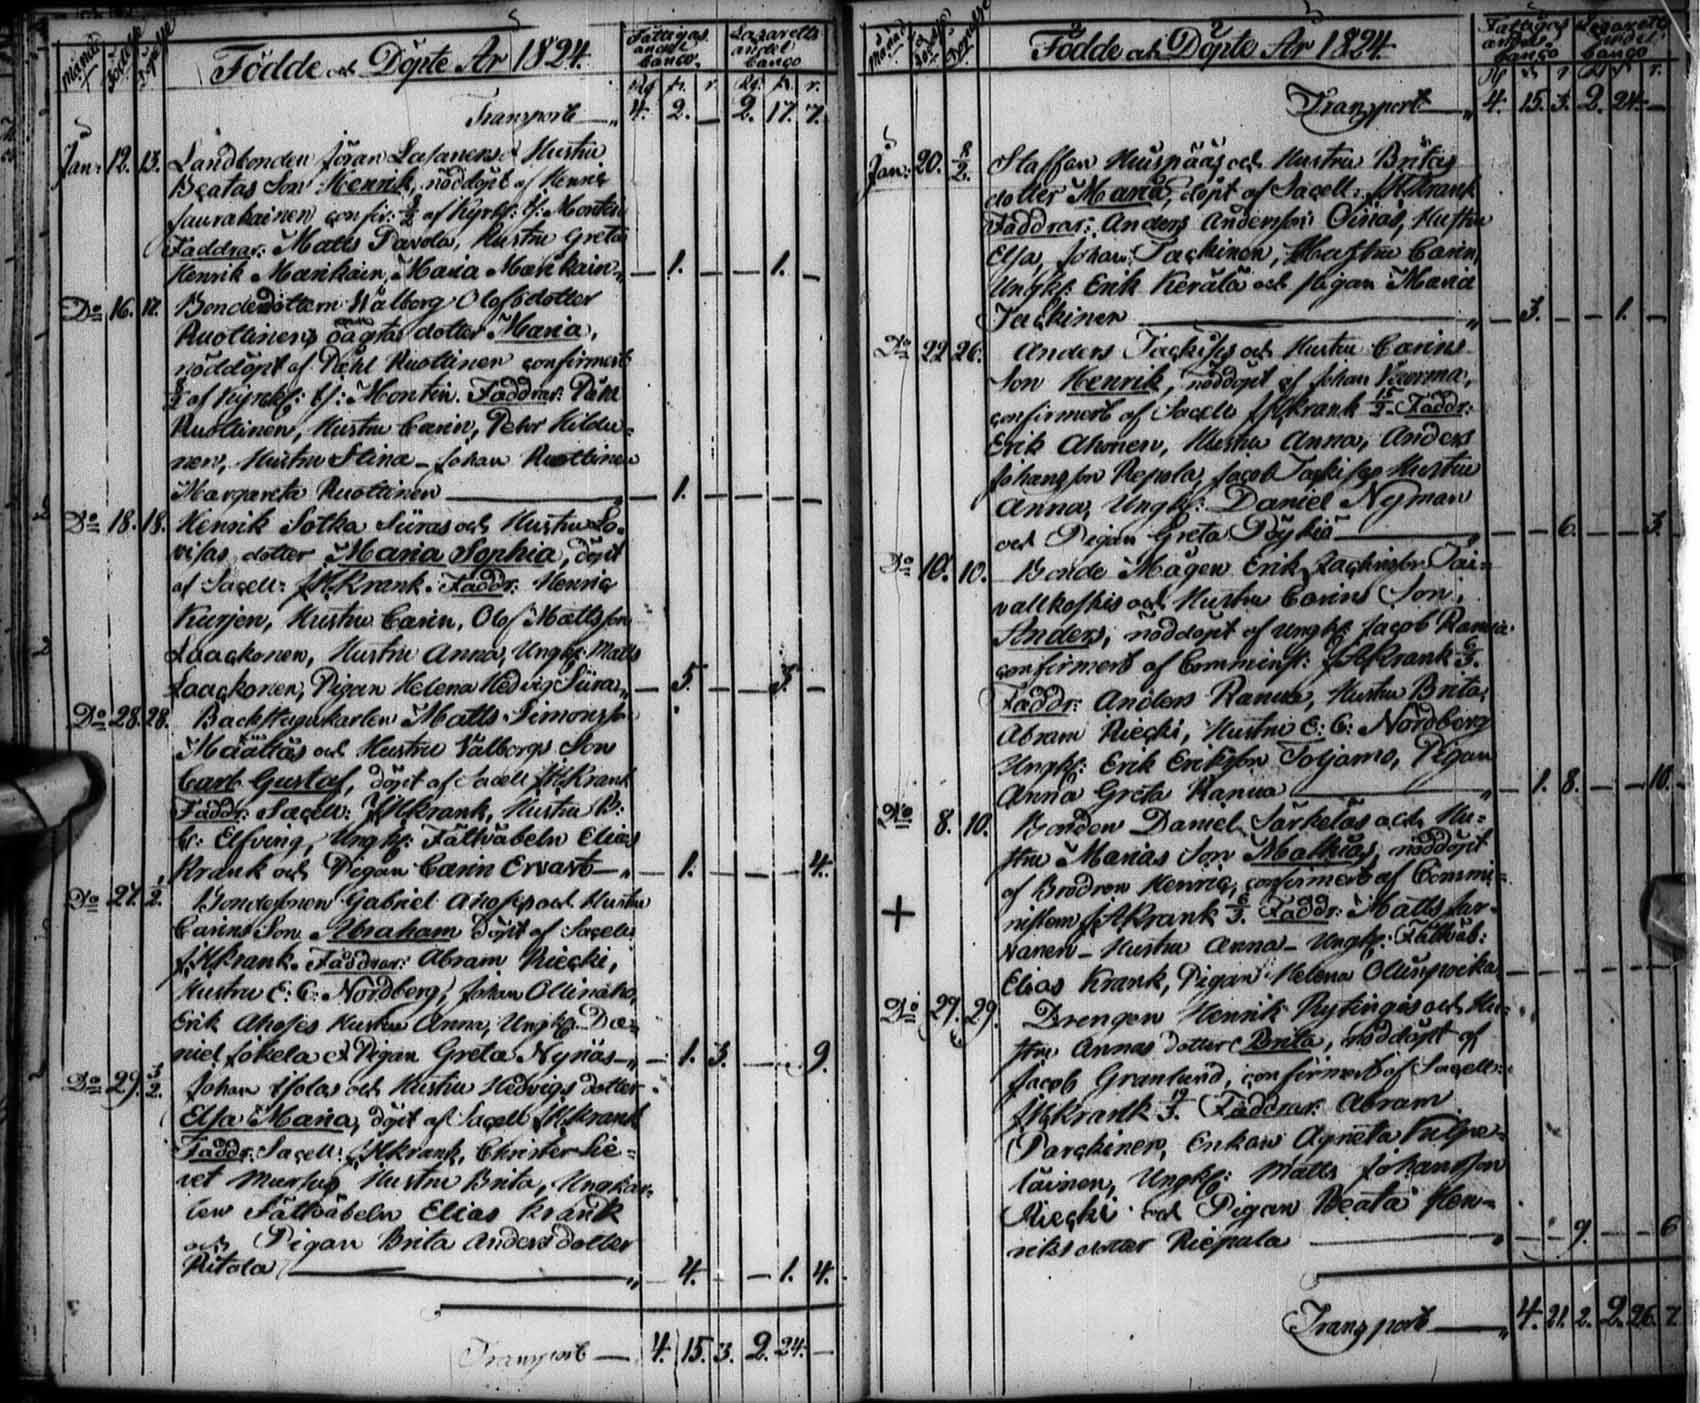 Månad Födelse Döpelse
Födde och Döpte År 1824.
Fattigas andel banco. Lazaretts andel banco
Rd s. r. Rd. s. r.
Transport — 4. 2. — 2. 17. 7.
Jan: 12. 13. Landbonden Jöran Hustru
Beatas Son Henrik, nöddöpt af Henric
confir: af Kyrkh: Montin
Faddrar: Matts Pavola, Hustru Greta
Henrik Manikain, Maria Manikain — 1. — — 1. —
Do 16. 17. Bondedottern Wålborg Olofsdotter
Ruottinens oägta dotter Maria,
nöddöpt af Påhl Ruottinen confirmert
af Kyrkh: Montin. Faddrar: Påhl
Ruottinen, Hustru Carin, Pehr Hildu-
nen, Hustru Stina — Johan Ruottinen
Margareta Ruottinen — 1. — — — —
Do 18. 18. Henrik Sotka Siiras och Hustru Lo-
visas dotter Maria Sophia, döpt
af Sacell: Krank. Faddr: Henric
Kurjen, Hustru Carin, Olof Mattsson
Laackonen, Hustru Anna, Ungk: Matts
Laackonen, Pigan Helena Hedvig Siira — 5. — — 3. —
Do 28. 28. Backstugukarlen Matts Simonsson
Määttäs och Hustru Valborgs Son
Carl Gustaf, döpt af Sacell Krank
Faddr: Sacell: Krank, Hustru B:
C: Elfving, Ungk: Fältväbeln Elias
Krank och Pigan Carin Ervast — 1. — — — 4.
Do 27. 1/2. Bondesonen Gabriel Ahos och Hustru
Carins Son Abraham döpt af Sacell:
Krank. Faddrar: Abram Riecki,
Hustru E: C: Nordberg, Johan Ollinaho,
Erik Ahoses Hustru Anna, Ungk: Da-
niel Jokela & Pigan Greta Nynäs — 1. 3. — — 9.
Do 29. 3/2. Johan Isolas och Hustru Hedvigs dotter
Elsa Maria, döpt af Sacell Krank
Faddr: Sacell: Krank, Christer Sie-
vet Hustru Brita, Ungkar-
len Fältväbeln Elias Krank
och Pigan Brita Andersdotter
Ritola — 4. — — 1. 4.
Transport — 4. 15. 3. 2. 24. —
Månad Födelse Döpelse
Födde och Döpte År 1824.
Fattigas andel banco Lazaretts andel banco
Transport — 4. 15. 3. 2. 24. —
Jan: 20. 8/2. Staffan Huispääs och Hustru Britas
dotter Maria, döpt af Sacell: Krank
Faddrar: Anders Andersson Oinas, Hustru
Elsa, Johan Jackinen, Hustru Carin,
Ungk: Erik Kerälä och Pigan Maria
Jackinen — 3. — — 1. —
Do 22 26. Anders och Hustru Carins
Son Henrik, nöddöpt af Johan
confirmert af Sacell Krank 15/2. Faddr:
Erik Ahonen, Hustru Anna, Anders
Johansson Repola, Jacob Hustru
Anna, Ungk: Daniel Nyman
och Pigan Greta Pöykiö — — 6. — — 3.
Do 10. 10. Bonde Mågen Erik Jackinson Tai-
valkoskis och Hustru Carins Son,
Anders, nöddöpt af ungk: Jacob Ranua
confirmert af Comminist: Krank 6/3.
Faddr: Anders Ranua, Hustru Brita,
Abram Riecki, Hustru E: C: Nordberg
Ungk: Erik Eriksson Torjamo, Pigan
Anna Greta Ranua — 1. 8. — — 10.
Do 8. 10. Bonden Daniel Särkeläs och Hu-
stru Marias Son Mathias, nöddöpt
af Brodren Henric, confirmert af Commi-
nistern Krank 6/3. Faddr: Matts Sar-
Hustru Anna — Ungk: Fältväb:
Elias Krank, Pigan Helena — — — — — —
+
Do 27. 29. Drengen Henrik Rytingis och Hu-
stru Annas dotter Brita, nöddöpt af
Jacob Granlund, confirmert af Sacell:
Krank 19/3. Faddrar: Abram
Parckinen, Enkan Agneta Pulpe-
täinen, Ungk: Matts Johansson
Riecki och Pigan Beata Hen-
riksdotter Riepula — — 9. — — 6
Transport — 4. 21. 2. 2. 26. 7.